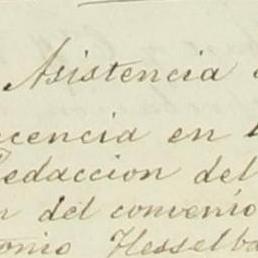 Asistencia
cencia en
Redaccion del
n del convenio
onio Hesselba